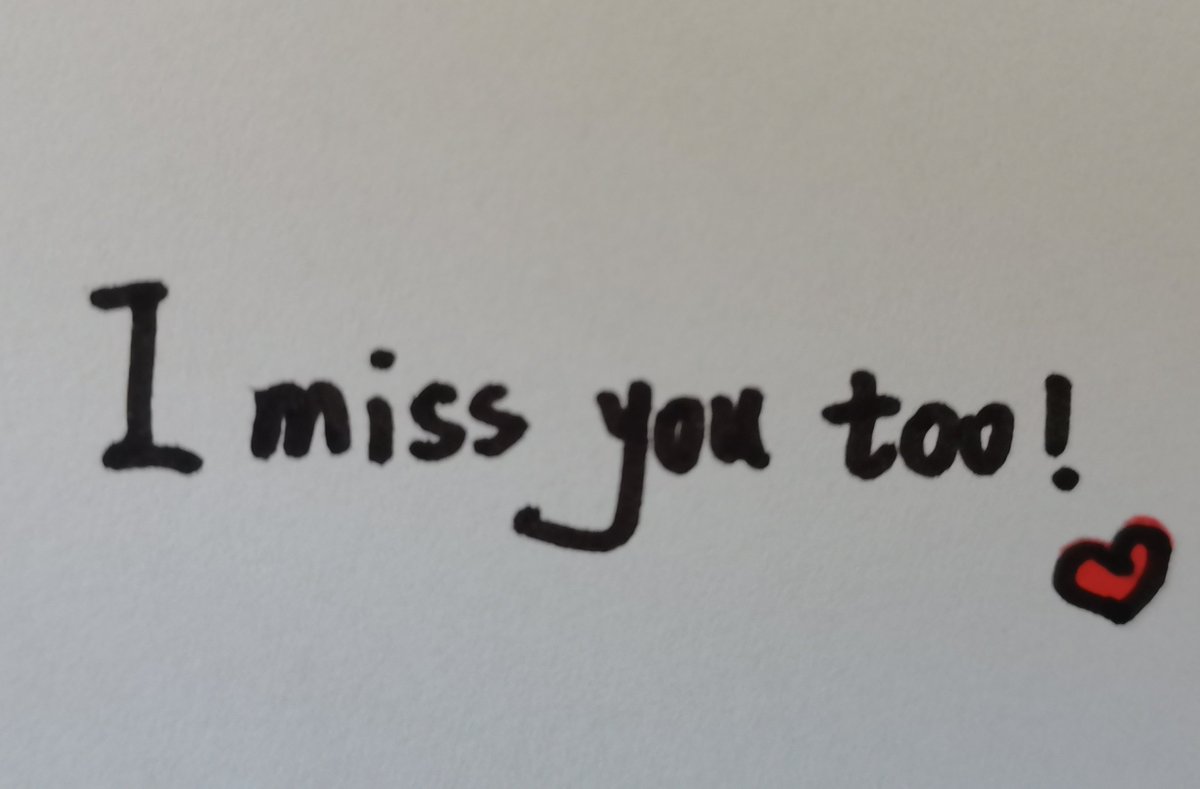 I miss you too!